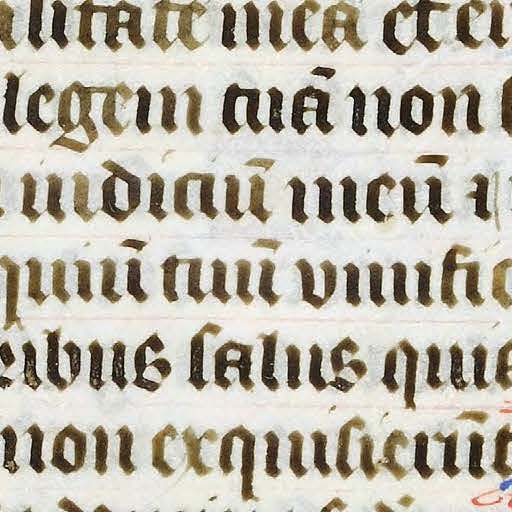 litate mea et eri
legem tuā non
iudiciū meū
quiū tuū vivifi
ribus salus quia
non exquisierūt